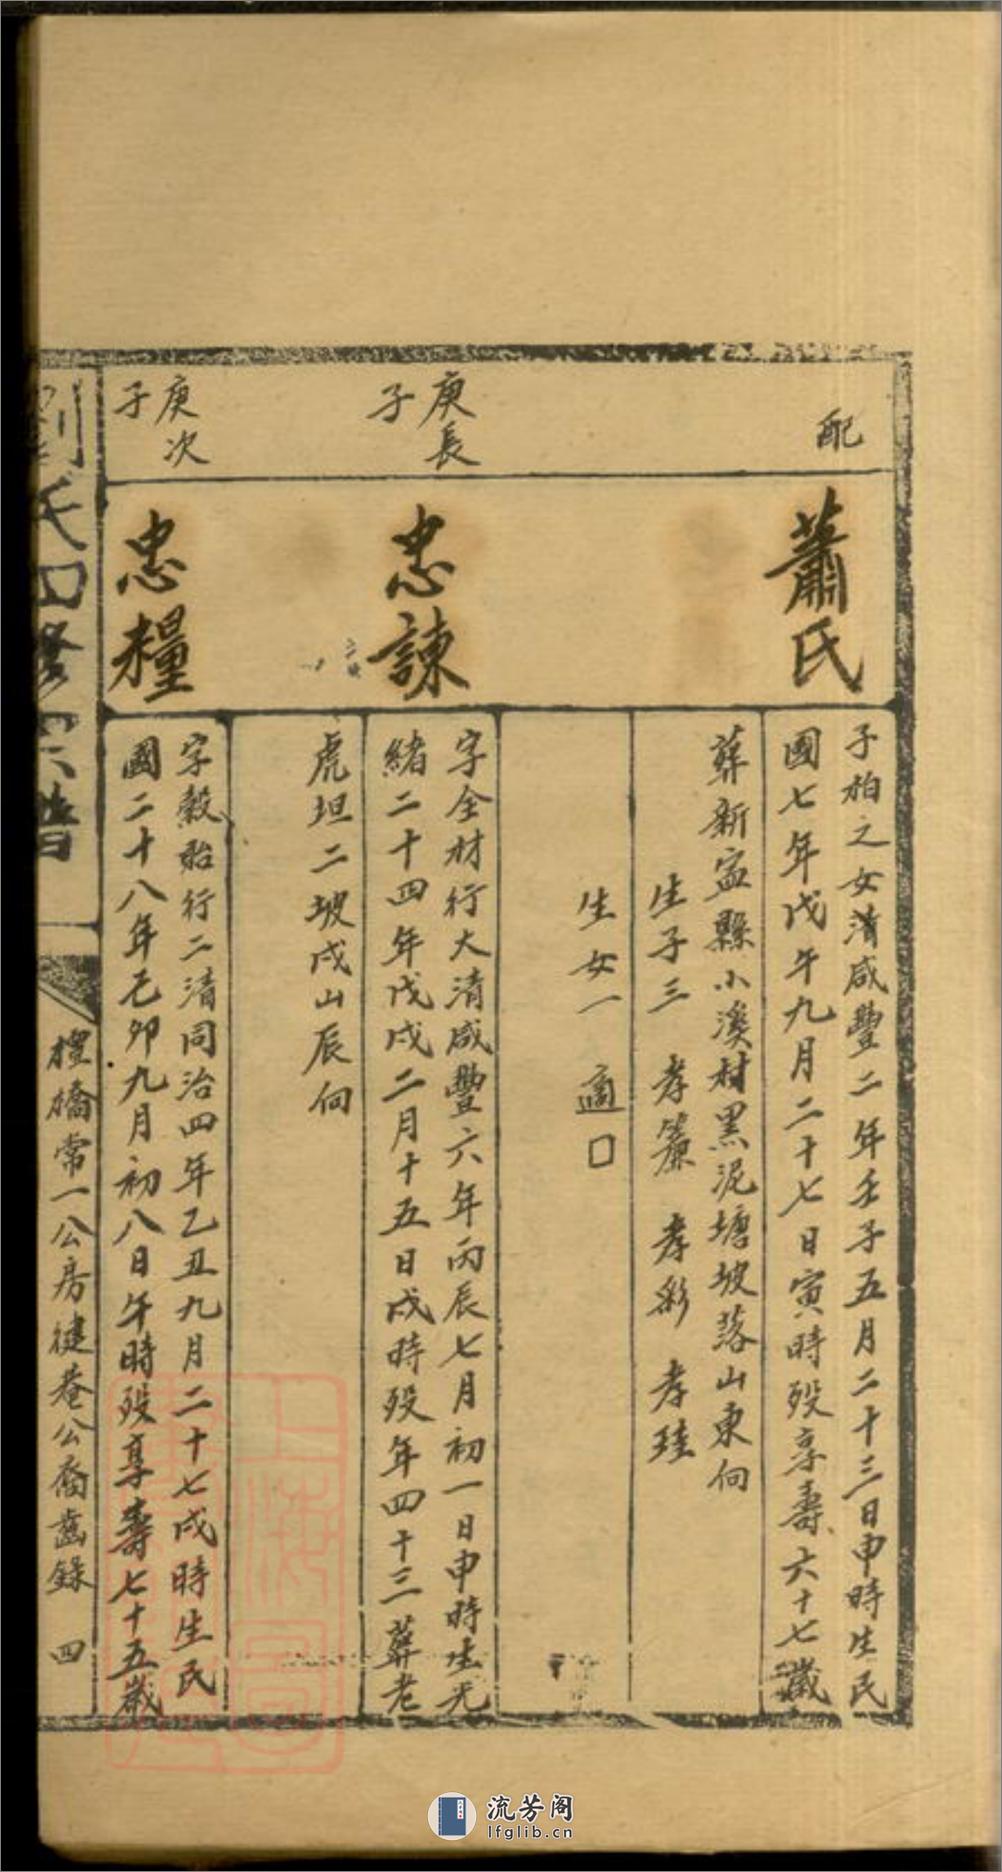 配
蕭氏
子柏之女清咸豐二年壬子五月二十三日申時生民
國七年戊午九月二十七日寅時殁享壽六十七歲
葬新寍縣小溪村黑泥塘坡落山東向
生子三 孝簾 孝彩 孝珪
生女一 適口
庚長
子
忠諫
字全材行大清咸豐六年丙辰七月初一日申時生光
緒二十四年戊戌二月十五日戌時殁年四十三葬老
虎坦二坡戌山辰向
庚次
子
忠糧
字穀貽行二清同治四年乙丑九月二十七戌時生民
國二十八年己卯九月初八日午時殁享壽七十五歲
劉氏四修宗譜
檀橋常一公房健菴公裔齒錄 四
流芳阁
lfglib.cn